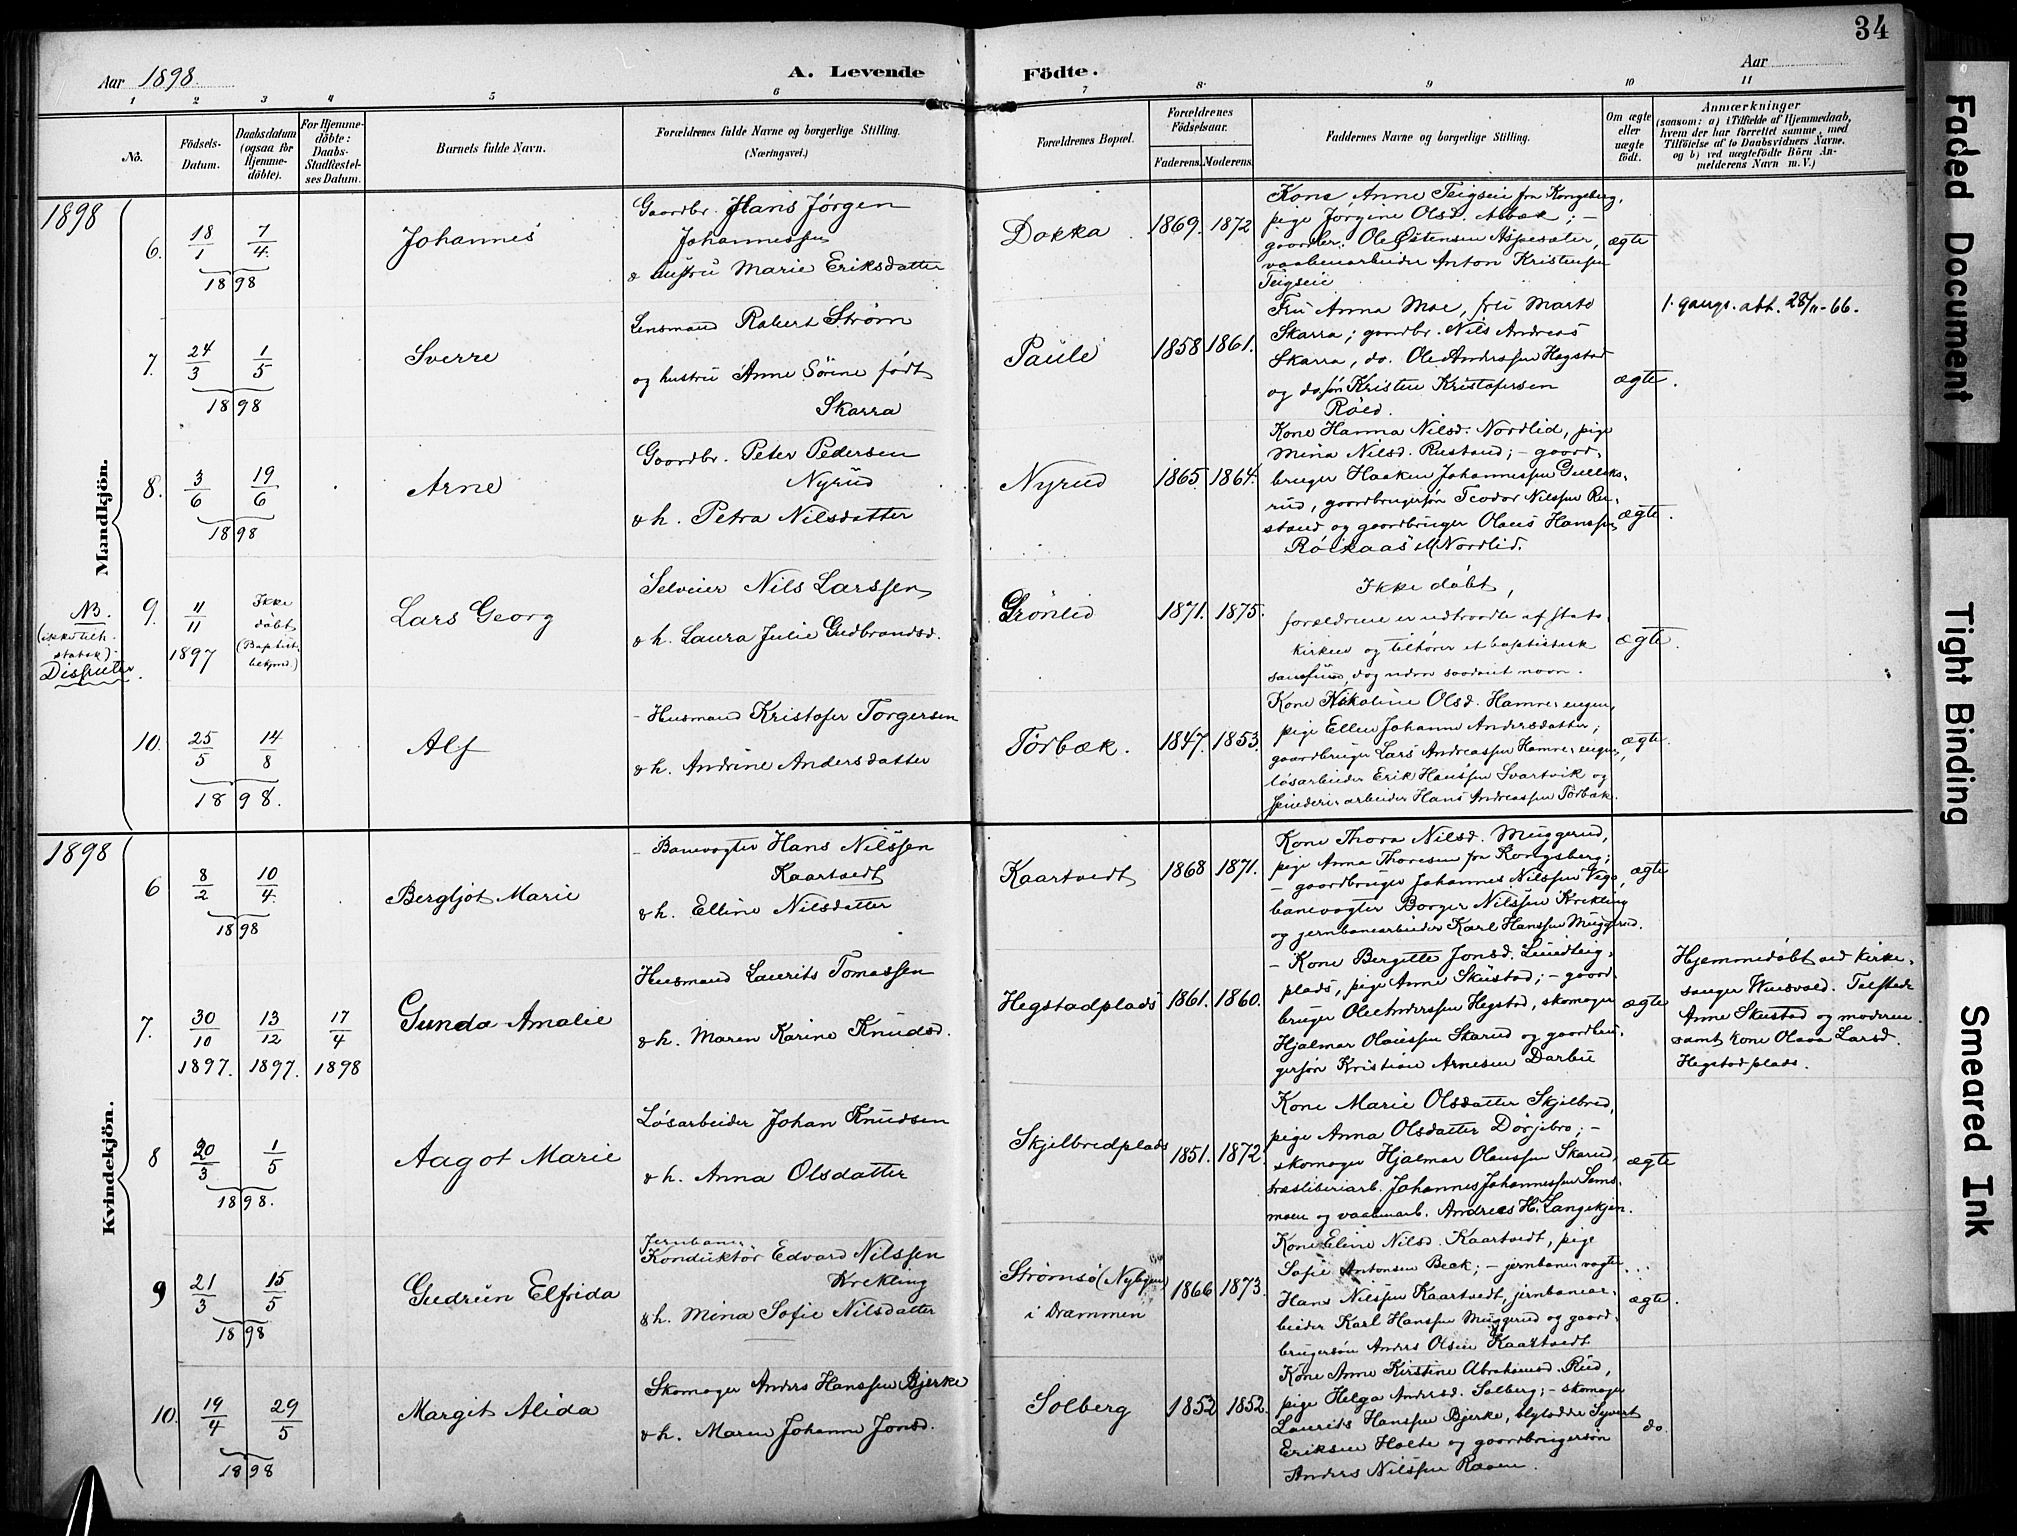 34
Aar 1898.
A. Levende Födte.
Aar
1 2 3 4 5 6 7 8 9 10 11
No.
Födsels-Datum.
Daabsdatum (ogsaa for Hjemme-döbte).
For Hjemme-döbte: Daabs-Stadfæstel-ses Datum.
Barnets fulde Navn.
Forældrenes fulde Navne og borgerlige Stilling. (Næringsvei.)
Forældrenes Bopæl.
Forældrenes Födselsaar.
Faderens. Moderens.
Faddernes Navne og borgerlige Stilling.
Om ægte eller uægte födt.
Anmærkninger
(saasom: a) i Tilfælde af Hjemmedaab, hvem der har forrettet samme, med Tilföielse af to Daabsvidners Navne, og b) ved uægtefödte Börn An-melderens Navn m. V.)
1898
Mandkjön.
6. 18/1 7/4 1898
Johannes
Gaardbr. Hans Jørgen
Johannessen
& hustru Marie Eriksdatter
Dokka
1869. 1872
Kone Anne Teigseie fra Kongsberg,
pige Jørgine Olsd. Abbæk; -
gaardbr. Ole Østensen Aspesæter,
vaabenarbeider Anton Kristensen
Teigseie
ægte
7. 24/3 1/5 1898
Sverre
Lensmand Robert Strøm
og hustru Anne Sørine født
Skarra
Paule
1858 1861.
Fru Anna Moe, frk Marte
Skarra; gaardbr. Nils Andreas
Skarra, do. Ole Anderssen Hegstad
og do søn Kristen Kristofersen
Røed.
ægte.
1. gangs. att. 28/11-66.
8. 3/6 19/6 1898
Arne
Gaardbr. Peter Pedersen
Nyrud
& h. Petra Nilsdatter
Nyrud
1865 1864.
Kone Hanna Nilsd. Nordlid, pige
Mina Nilsd. Rustand; - gaard-
bruger Haaken Johannessen Gulliks-
rud, gaardbrugersøn Teodor Nilssen Ru-
stand og gaardbruger Olaus Hanssen
Nordlid.
ægte.
NB.
Dissenter
9. 11/11 1897
Ikke døbt
Lars Georg
Selveier Nils Larssen
& h. Laura Julie Gudbrandsd.
Grønlid
1871. 1875.
Ikke døbt,
forældrene er udtraadte af stats-
kirken og tilhører et baptistisk
samfund, dog uden saadant navn.
ægte.
10. 25/5 14/8 1898.
Alf
- Husmand Kristofer Torgersen
& h. Andrine Andersdatter
Tørbæk.
1847. 1853.
Kone Nikoline Olsd. Hamre-engen,
pige Ellen Johanne Andersdatter;
gaardbruger Lars Andreassen Hamre-engen,
løsarbeider Erik Hanssen Svartvik og
spinderi-arbeider Hans Andreassen Tørbæk.
ægte.
1898
Kvindekjön.
6 8/2 10/4 1898
Bergljot Marie
- Banevogter Hans Nilssen
Kaartvedt
& h. Elline Nilsdatter
Kaartvedt
1868 1871.
Kone Thora Nilsd. Muggerud,
pige Anna Thoresen fra Kongsberg;
- gaardbruger Johannes Nilssen Vego,
banevogter Borger Nilssen Krekling
og jernbanearbeider Karl Hanssen Muggerud.
ægte
7. 30/10 1897. 13/12 1897. 17/4 1898
Gunda Amalie
Husmand Laurits Tomassen
& h. Maren Karine Knudsd.
Hegstadplads
1861. 1860.
- Kone Bergitte Jonsd. Lundteig-
plads, pige Anne Skustad; - gaard-
bruger Ole Anderssen Hegstad, skomager
Hjalmar Olaussen Skarud og gaardbru-
gersøn Kristian Arnesen Darbu
ægte
Hjemmedøbt ved kirke-
sanger Wuisvold. Tilstede
Anne Skustad og moderen
samt kone Olava Larsd.
Hegstadplads.
8 20/3 1/5 1898.
Aagot Marie
Løsarbeider Johan Knudsen
& h. Anna Olsdatter
Skjelbredplads
1851. 1872.
Kone Marie Olsdatter Skjelbred,
pige Anna Olsdatter Dørjebro; -
skomager Hjalmar Olaussen Skarud,
træsliberiarb. Johannes Johannessen Sems-
moen og vaabenarb. Andreas H. Langekjen.
ægte
9 21/3 15/5 1898
Gudrun Elfrida
Jernbane-
Konduktør Edvard Nilssen
Krekling
& h. Mina Sofie Nilsdatter
Strømsø (Nybyen)
i Drammen
1866 1873.
Kone Eline Nilsd. Kaartvedt, pige
Sofie Antonsen Beck; - jernbanevogter
Hans Nilssen Kaartvedt, jernbanear-
beider Karl Hanssen Muggerud og gaard-
brugersøn Anders Olsen Kaartvedt
ægte.
10. 19/4 29/5 1898
Margit Alida
Skomager Anders Hanssen Bjerke
& h. Maren Johanne Jonsd.
Solberg
1852 1852.
Kone Anne Kirstine Abrahamsd. Rud,
pige Helga Andersd. Solberg; - skomager
Laurits Hanssen Bjerke, Syvert
Eriksen Holte og gaardbrugersøn
Anders Nilssen Raaen.
do.
Faded Document
Tight Binding
Smeared Ink